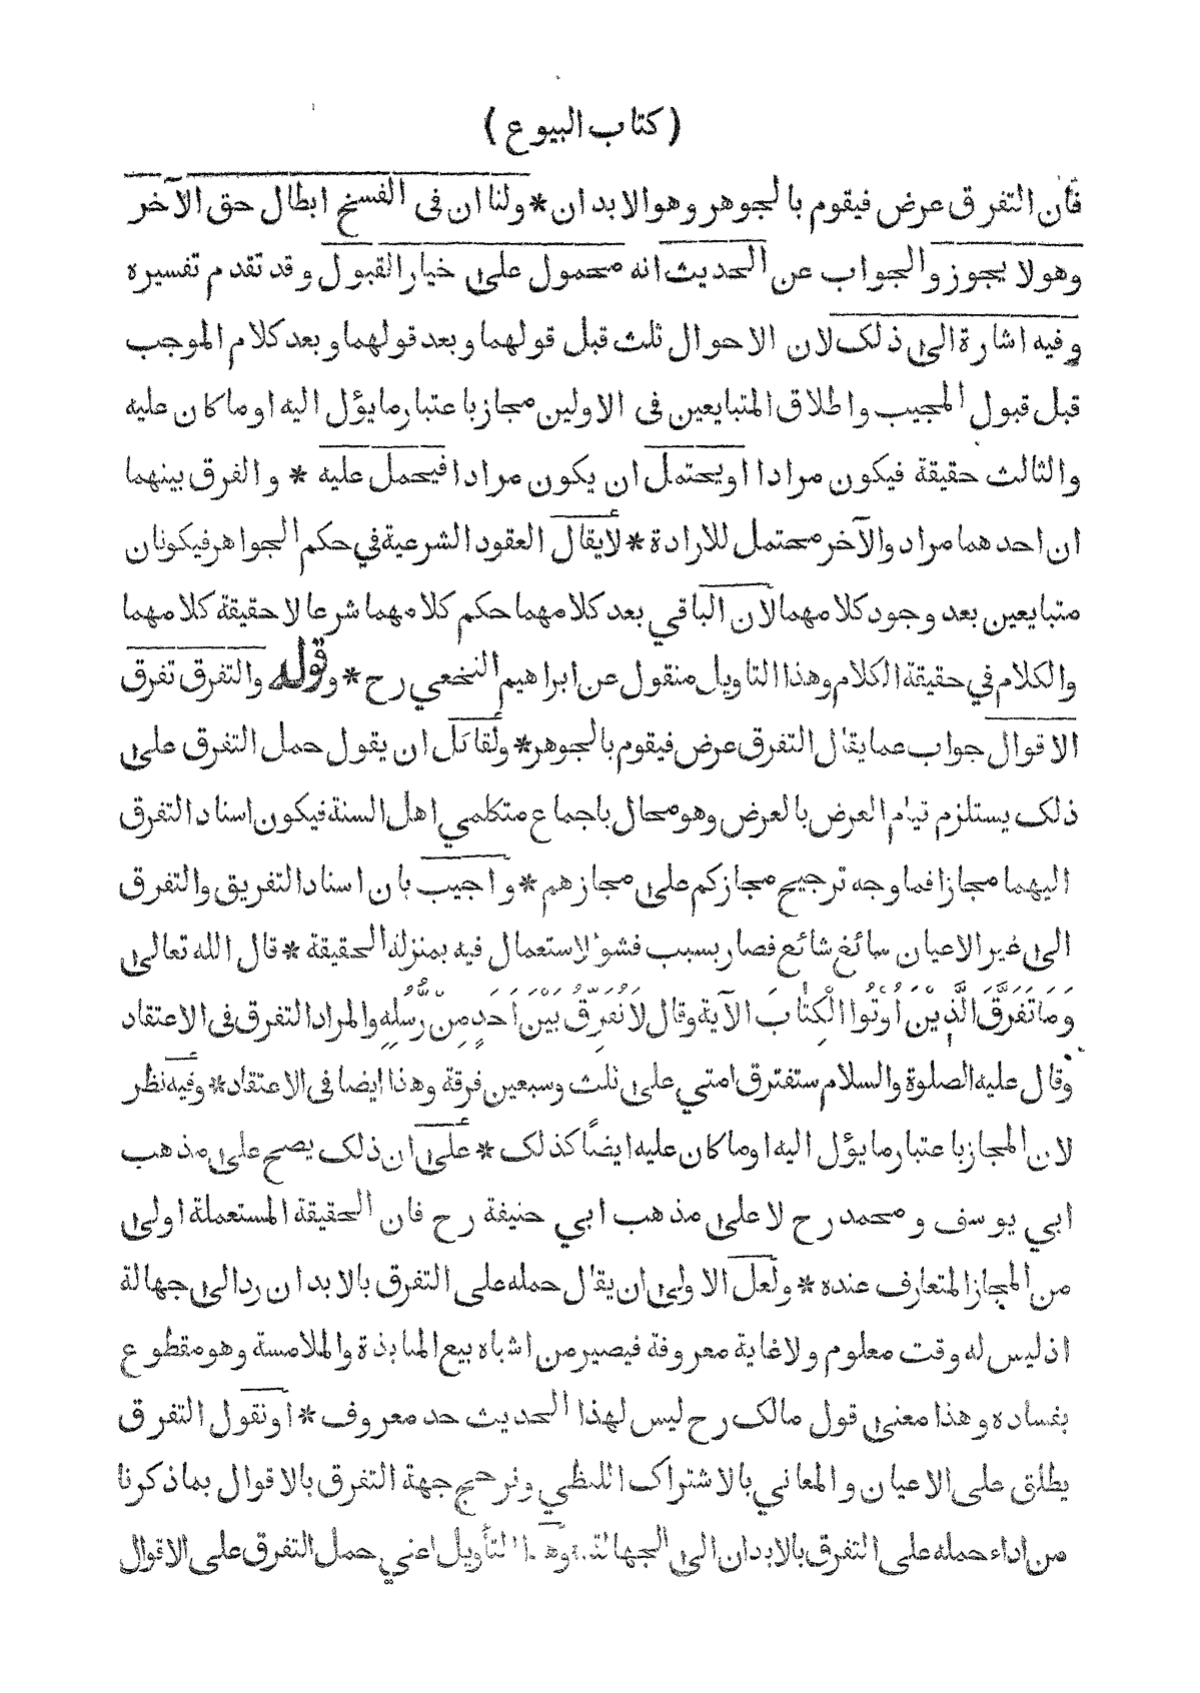 ( كتاب البيوع )
فان التفرق عرض فيقوم بالجوهر وهو الابدان * ولنا ان فى الفسخ ابطال حق الآخر
وهو لا يجوز والجواب عن الحديث انه محمول على خيار القبول وقد تقدم تفسيره
وفيه اشارة الى ذلك لان الاحوال ثلث قبل قولهما وبعد قولهما وبعد كلام الموجب
قبل قبول المجيب واطلاق المتبايعين فى الاولين مجاز باعتبار ما يؤل اليه او ما كان عليه
والثالث حقيقة فيكون مرادا او يحتمل ان يكون مرادا فيحمل عليه * والفرق بينهما
ان احدهما مراد والآخر محتمل للارادة * لا يقال العقود الشرعية في حكم الجواهر فيكونان
متبايعين بعد وجود كلامهما لان الباقي بعد كلامهما حكم كلامهما شرعا لا حقيقة كلامهما
والكلام في حقيقة الكلام وهذا التاويل منقول عن ابراهيم النخعي رح * وقوله والتفرق تفرق
الاقوال جواب عما يقال التفرق عرض فيقوم بالجوهر * ولقائل ان يقول حمل التفرق على
ذلك يستلزم قيام العرض بالعرض وهو محال باجماع متكلمي اهل السنة فيكون اسناد التفرق
اليهما مجازا فما وجه ترجيح مجازكم على مجازهم * واجيب بان اسناد التفريق والتفرق
الى غير الاعيان سائغ شائع فصار بسبب فشو الاستعمال فيه بمنزلة الحقيقة * قال الله تعالى
وَمَا تَفَرَّقَ الَّذِيْنَ اُوْتُوا الْكِتٰبَ الآية وقال لَا نُفَرِّقُ بَيْنَ اَحَدٍ مِنْ رُّسُلِهِ والمراد التفرق فى الاعتقاد
وقال عليه الصلوة والسلام ستفترق امتي على ثلث وسبعين فرقة وهذا ايضا فى الاعتقاد * وفيه نظر
لان المجاز باعتبار ما يؤل اليه او ما كان عليه ايضًا كذلك * على ان ذلك يصح على مذهب
ابي يوسف ومحمد رح لا على مذهب ابي حنيفة رح فان الحقيقة المستعملة اولى
من المجاز المتعارف عنده * ولعل الاولى ان يقال حمله على التفرق بالابدان رد الى جهالة
اذ ليس له وقت معلوم ولا غاية معروفة فيصير من اشباه بيع المنابذة والملامسة وهو مقطوع
بفساده وهذا معنى قول مالك رح ليس لهذا الحديث حد معروف * او نقول التفرق
يطلق على الاعيان والمعاني بالاشتراك اللفظي ونرجح جهة التفرق بالاقوال بما ذكرنا
من اداء حمله على التفرق بالابدان الى الجهالة وهذا التأويل اعني حمل التفرق على الاقوال